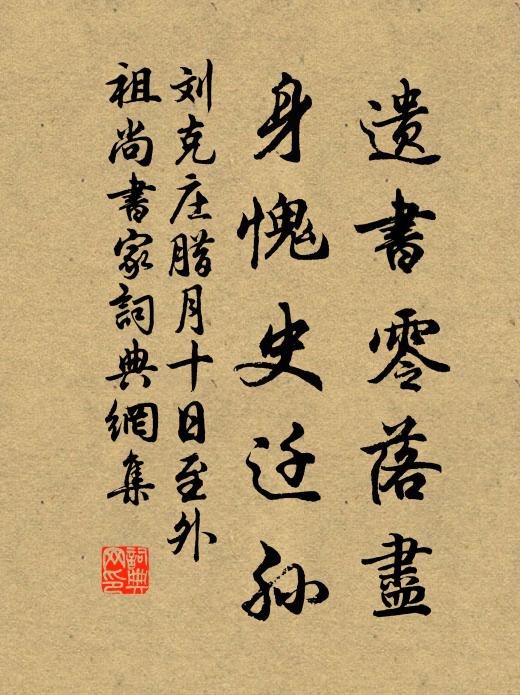 遗書零落盡
身愧史迁孙
刘克庄腊月十日至外
祖尚書家詞典網集
詞典
网印